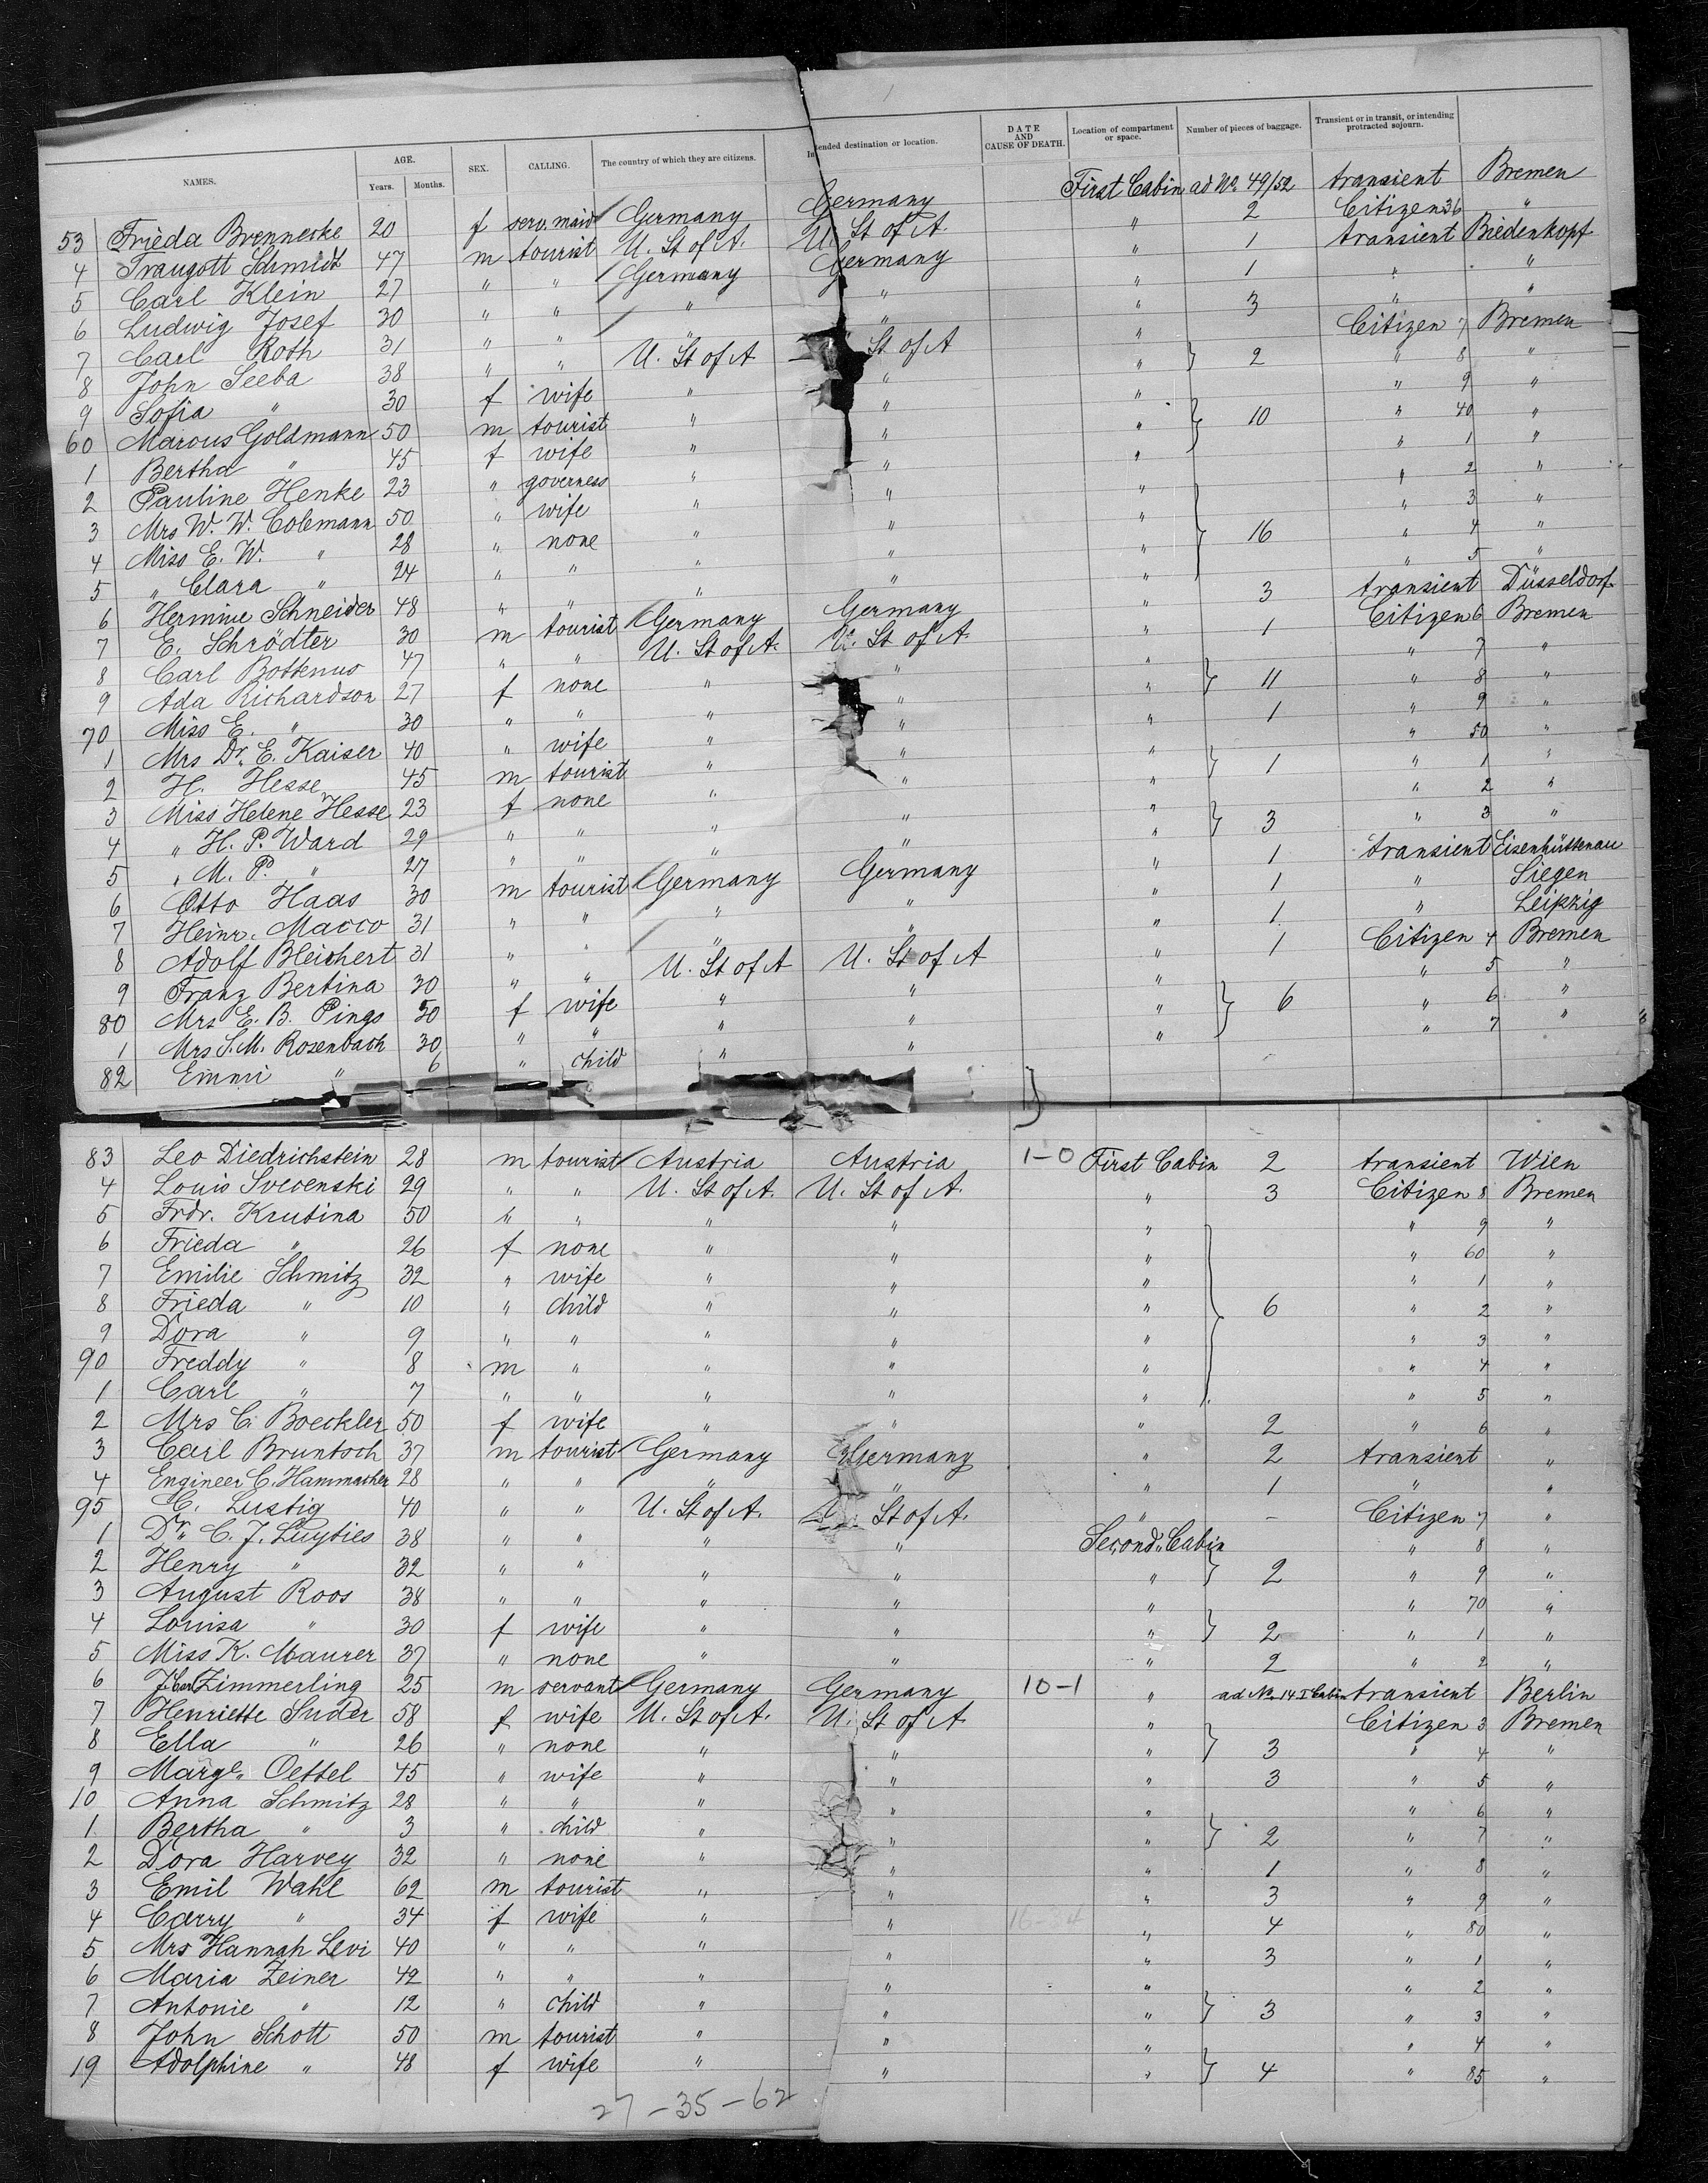 NAMES. AGE. Years. Months. SEX. CALLING. The country of which they are citizens. Intended destination or location. DATE AND CAUSE OF DEATH. Location of compartment or space. Number of pieces of baggage. Transient or in transit, or intending protracted sojourn.
53 Frieda Brennecke 20 f serv. maid Germany Germany First Cabin ad No. 49/52 transient Bremen
4 Traugott Schmidt 47 m tourist U. St of A. U. St of A. " 2 Citizen 36 "
5 Carl Klein 27 " " Germany Germany " 1 transient Biedenkopf
6 Ludwig Josef 30 " " " " " 1 " "
7 Carl Roth 31 " " " " " 3 " "
8 John Seeba 38 " " U. St of A St of A " Citizen 7 Bremen
9 Sofia " 30 f wife " " " } 2 " 8 "
60 Marcus Goldmann 50 m tourist " " " " 9 "
1 Bertha " 45 f wife " " " } 10 " 40 "
2 Pauline Henke 23 " governess " " " " 1 "
3 Mrs W. W. Colemann 50 " wife " " " " 2 "
4 Miss E. W. " 28 " none " " " } 16 " 3 "
5 " Clara " 24 " " " " " " 4 "
6 Hermine Schneider 48 " " " " " " 5 "
7 E. Schrödter 30 m tourist Germany Germany " 3 transient Düsseldorf
8 Carl Bottenus 47 " " U. St of A. U. St of A. " 1 Citizen 6 Bremen
9 Ada Richardson 27 f none " " " " 7 "
70 Miss E. " 30 " " " " " } 11 " 8 "
1 Mrs Dr. E. Kaiser 40 " wife " " " 1 " 9 "
2 H. Hesse 45 m tourist " " " " 50 "
3 Miss Helene Hesse 23 f none " " " } 1 " 1 "
4 " H. P. Ward 29 " " " " " " 2 "
5 " M. P. " 27 " " " " " } 3 " 3 "
6 Otto Haas 30 m tourist Germany Germany " 1 transient Eisenhüttenau
7 Heinr. Macco 31 " " " " " 1 " Siegen
8 Adolf Bleichert 31 " " " " " 1 " Leipzig
9 Franz Bertina 30 " " U. St of A U. St of A " 1 Citizen 4 Bremen
80 Mrs E. B. Pings 50 f wife " " " " 5 "
1 Mrs S. M. Rosenbach 30 " " " " " } 6 " 6 "
82 Emmi " 6 " child " " " " 7 "
83 Leo Diedrichstein 28 m tourist Austria Austria 1-0 First Cabin 2 transient Wien
4 Louis Svecenski 29 " " U. St of A. U. St of A. " 3 Citizen 8 Bremen
5 Frdr. Krutina 50 " " " " " " 9 "
6 Frieda " 26 f none " " " " 60 "
7 Emilie Schmitz 32 " wife " " " " 1 "
8 Frieda " 10 " child " " " } 6 " 2 "
9 Dora " 9 " " " " " " 3 "
90 Freddy " 8 m " " " " " 4 "
1 Carl " 7 " " " " " " 5 "
2 Mrs C. Boeckler 50 f wife " " " 2 " 6 "
3 Carl Bruntsch 37 m tourist Germany Germany " 2 transient "
4 Engineer C. Hammacher 28 " " " " " 1 " "
95 C. Lustig 40 " " U. St of A. U. St of A. " - Citizen 7 "
1 Dr. C. J. Luyties 38 " " " " Second Cabin " 8 "
2 Henry " 32 " " " " " } 2 " 9 "
3 August Roos 38 " " " " " " 70 "
4 Louisa " 30 f wife " " " } 2 " 1 "
5 Miss K. Maurer 37 " none " " " 2 " 2 "
6 Zimmerling 25 m servant Germany Germany 10-1 " ad No. 14 I Cabin transient Berlin
7 Henriette Suder 58 f wife U. St of A. U. St of A " Citizen 3 Bremen
8 Ella " 26 " none " " " } 3 " 4 "
9 Marg. Oettel 45 " wife " " " 3 " 5 "
10 Anna Schmitz 28 " " " " " " 6 "
1 Bertha " 3 " child " " " } 2 " 7 "
2 Dora Harvey 32 " none " " " 1 " 8 "
3 Emil Wahl 62 m tourist " " " 3 " 9 "
4 Carry " 34 f wife " " 16-34 " 4 " 80 "
5 Mrs Hannah Levi 40 " " " " " 3 " 1 "
6 Maria Zeiner 42 " " " " " " 2 "
7 Antonie " 12 " child " " " } 3 " 3 "
8 John Schott 50 m tourist " " " " 4 "
19 Adolphine " 48 f wife " " " } 4 " 85 "
27-35-62